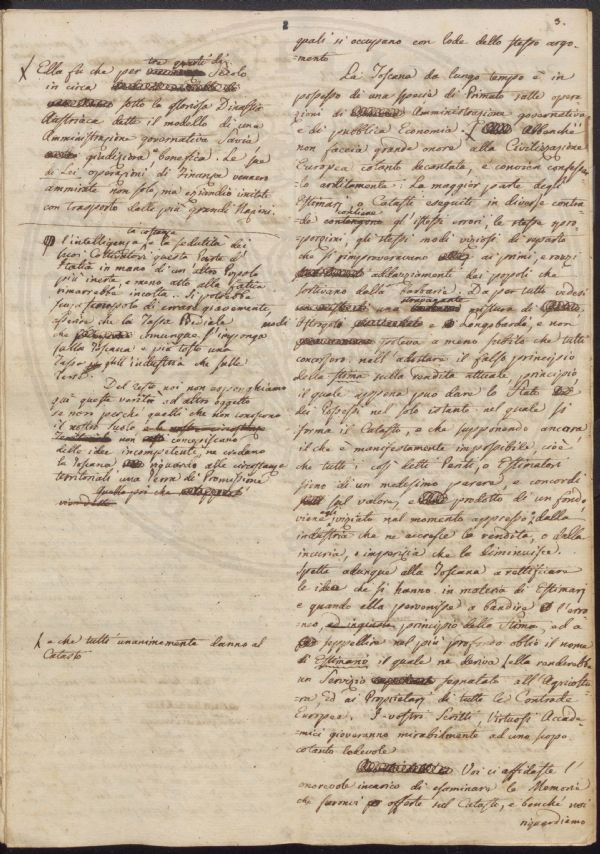 3.
quali si occupano con lode dello stesso argo-
mento
La Toscana da lungo tempo è in
possesso di una specie di Primato sulle opera-
zioni di Amministrazione governativa
e di pubblica Economia. Abbenchè
non faccia grande onore alla Civilizzazione
Europea cotanto decantata, e convien confessar-
lo arditamente: La maggior parte degli
Estimarj, o Catasti eseguiti in diverse contra-
de contiene gl'istessi errori, le stesse spro-
porzioni, gli stessi modi viziosi di reparto
che si rimproveravano ai primi, e rozzi
allibramenti dei popoli che
sortivano dalla barbarie. Da per tutto vedesi
una stravagante mistura di
Ostrogoto e Longobardo, e non
poteva a meno subito che tutti
concorsero nell'adottare il falso principio
della stima sulla rendita attuale principio,
il quale appena può dare lo Stato
dei Possessi nel solo istante nel quale si
forma il Catasto, e che supponendo ancora
il che è manifestamente impossibile, cioè
che tutti i così detti Periti, o Estimatori
sieno di un medesimo parere, e concordi
sul valore, e prodotto di un fondo,
viene egli viziato nel momento appresso, o dalla
industria che ne accresce la rendita, o dalla
incuria, e imperizia che la diminuisce.
Spetta adunque alla Toscana a rettificare
le idee che si hanno in materia di Estimarj
e quando ella pervenisse a bandire l'erro-
neo, ed ingiusto principio della Stima, ed a
seppellire nel più profondo oblio il nome
di Estimario il quale ne deriva, ella renderebbe
un Servizio segnalato all'Agricoltu-
ra, ed ai Proprietarj di tutte le Contrade
Europee. I vostri Scritti, Virtuosi Accade-
mici gioveranno mirabilmente ad uno scopo
cotanto lodevole
Voi ci affidaste l'
onorevole incarico di esaminare le Memorie
che furonvi offerte sul Catasto, e benchè noi
riguardiamo
Ella fù che per tre quarti di Secolo
in circa
sotto la gloriosa Dinastia
Austriaca dette il modello di una
Amministrazione governativa Savia
giudiziosa benefica. Le sue
di Lei operazioni di Finanza vennero
ammirate non solo, ma eziandio imitate
con trasporto dalle più grandi Nazioni.
l'intelligenza, la costanza e la sedulità dei
suoi Coltivatori questa Vicenda d'
Italia in mano di un'altro Popolo
più inerte, e meno atto alla fatica
rimarrebbe incolta. Si potrebbe
senza timore di errare gravemente,
asserire che la Tassa Prediale,
che comunque s'imponga
sulla Toscana, è più tosto una
Tassa sull'industria che sulle
Terre.
Del resto noi non esponghiamo
qui queste verità ad altro oggetto
se non perchè quelli che non conoscono
il nostro suolo
non concepiscano
delle idee incompetenti, ne credano
la Toscana riguardo alle circostanze
territoriali una Terra di Promissione
e che tutti unanimamente danno al
Catasto